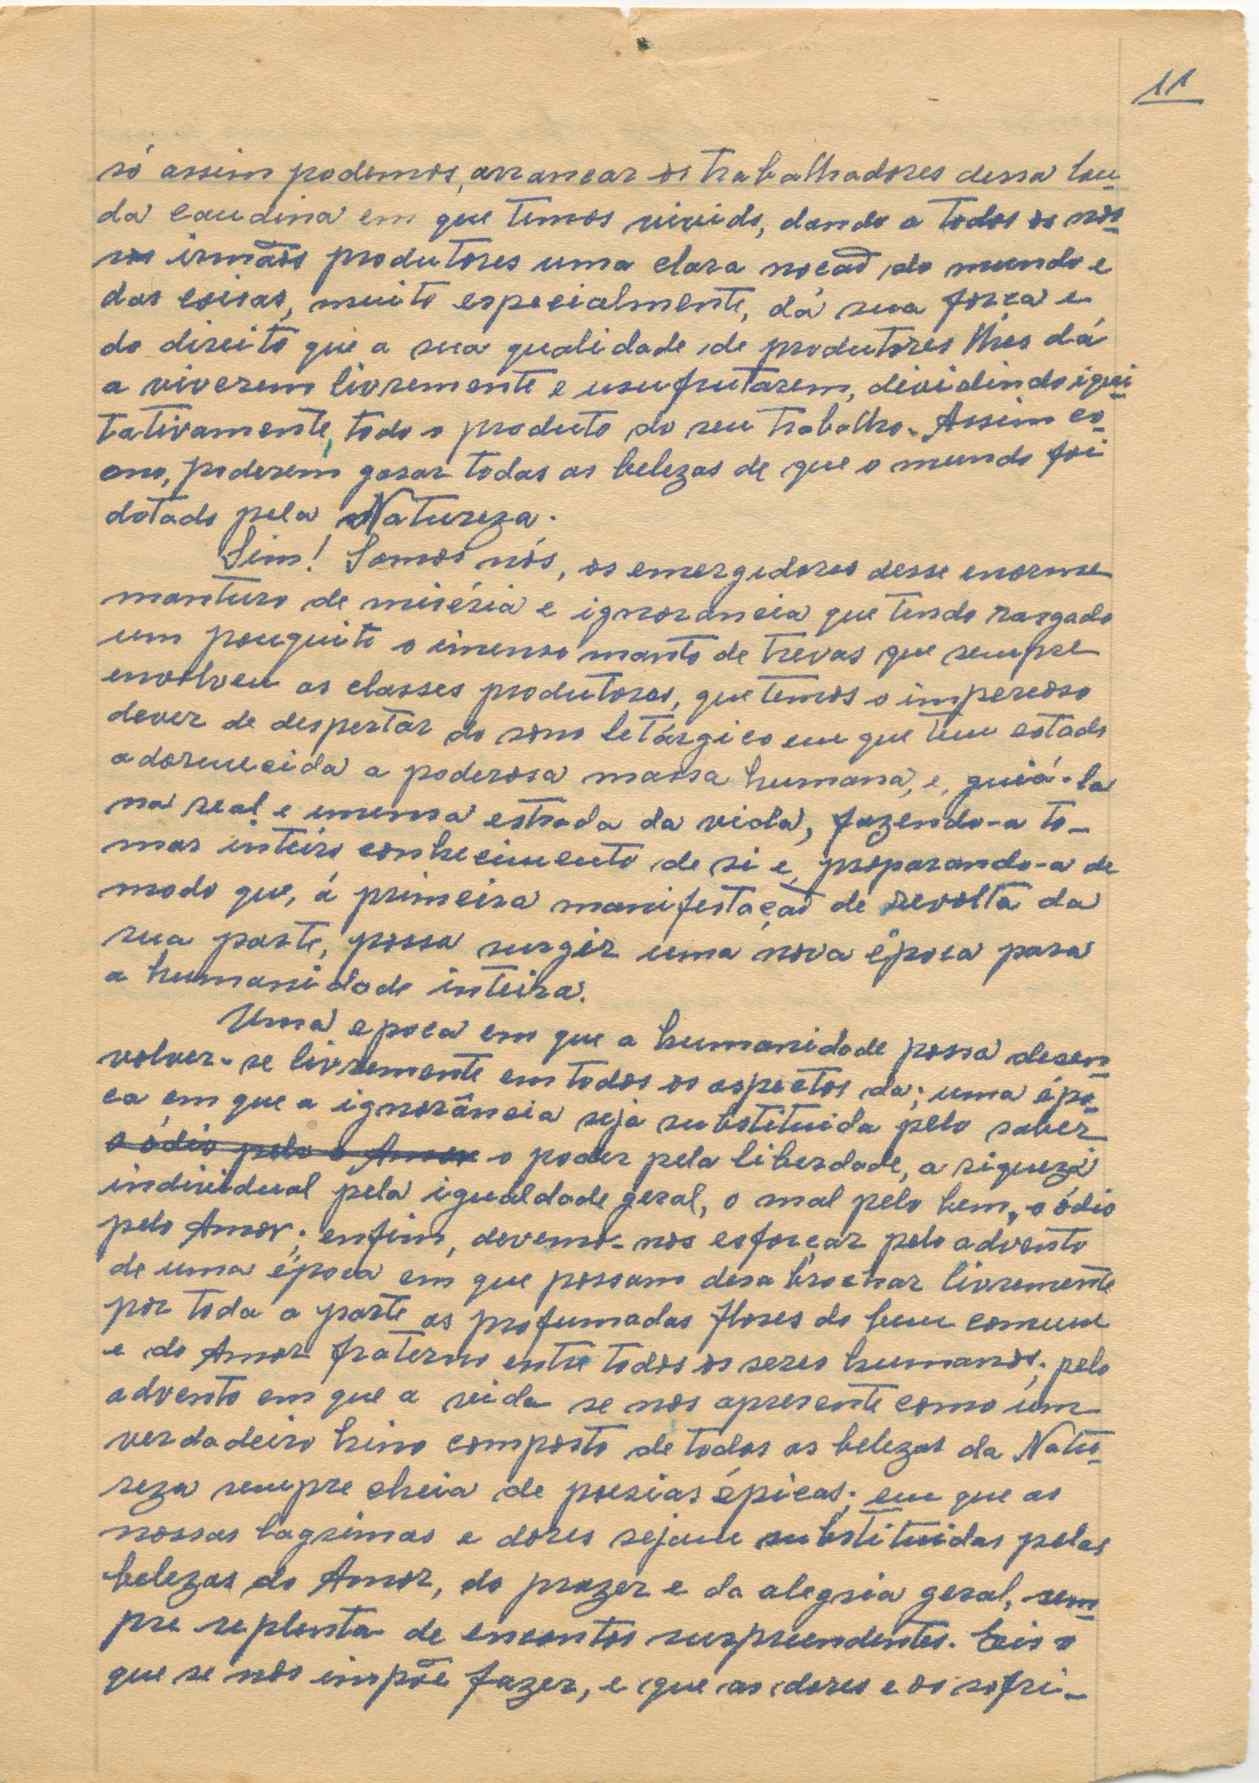 11
só assim podemos, arrancar os trabalhadores dessa
da caudina em que temos vivido, dando a todos os nos-
sos irmãos produtores uma clara noção do mundo e
das coisas, muito especialmente, da sua força e
do direito que a sua qualidade de produtores lhes dá
a viverem livremente e usufrutarem, dividindo iqui-
tativamente, todo o produto do seu trabalho. Assim co-
mo, poderem gosar todas as belezas de que o mundo foi
dotado pela Natureza.
Sim! Somos nós, os emergidores desse enorme
monturo de miséria e ignorancia que tendo rasgado
um pouquito o imenso manto de trevas que sempre
envolveu as classes produtoras, que temos o imperioso
dever de despertar do sono letárgico em que tem estado
adormecida a poderosa massa humana, e, guiá-la
na real e imensa estrada da vida, fazendo-a to-
mar inteiro conhecimento de si e, preparando-a de
modo que, á primeira manifestação de revolta da
sua parte, possa surgir uma nova época para
a humanidade inteira.
Uma epoca em que a humanidade possa desen-
volver-se livremente em todos os aspectos da; uma épo-
ca em que a ignorância seja substituida pelo saber
o ódio pelo o Amor o poder pela liberdade, a riqueza
individual pela igualdade geral, o mal pelo bem, o ódio
pelo Amor; enfim, devemo-nos esforçar pelo advento
de uma época em que possam desabrochar livremente
por toda a parte as profumadas flores do bem comum
e do Amor fraterno entre todos os seres humanos; pelo
advento em que a vida se nos apresente como um
verdadeiro hino composto de todas as belezas da Natu-
reza sempre cheia de poesias épicas; em que as
nossas lagrimas e dores sejam substituidas pelas
belezas do Amor, do prazer e da alegria geral, sem-
pre repleta de encantos surpreendentes. Eis o
que se nos impõe fazer, e que as dores e os sofri-